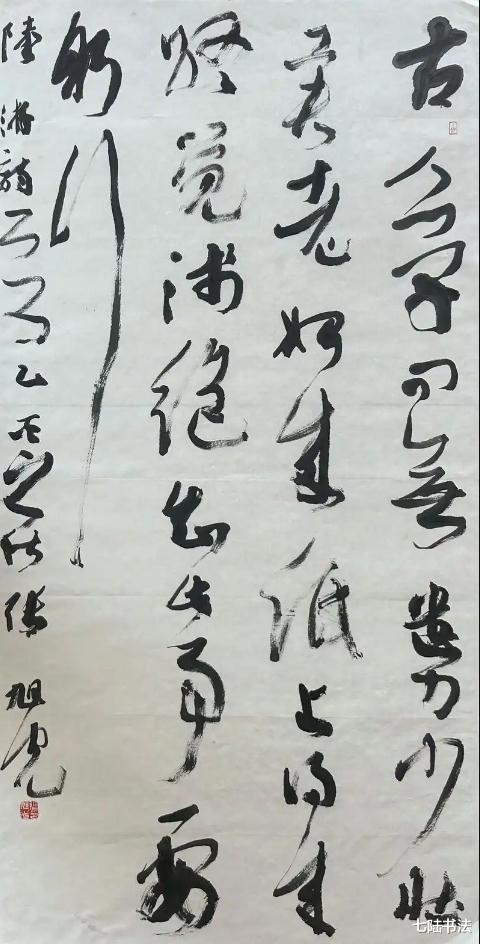 古人学问无遗力少壮
工夫老始成纸上得来
终觉浅绝知此事要
躬行
陸游詩
旭光
七陆书法